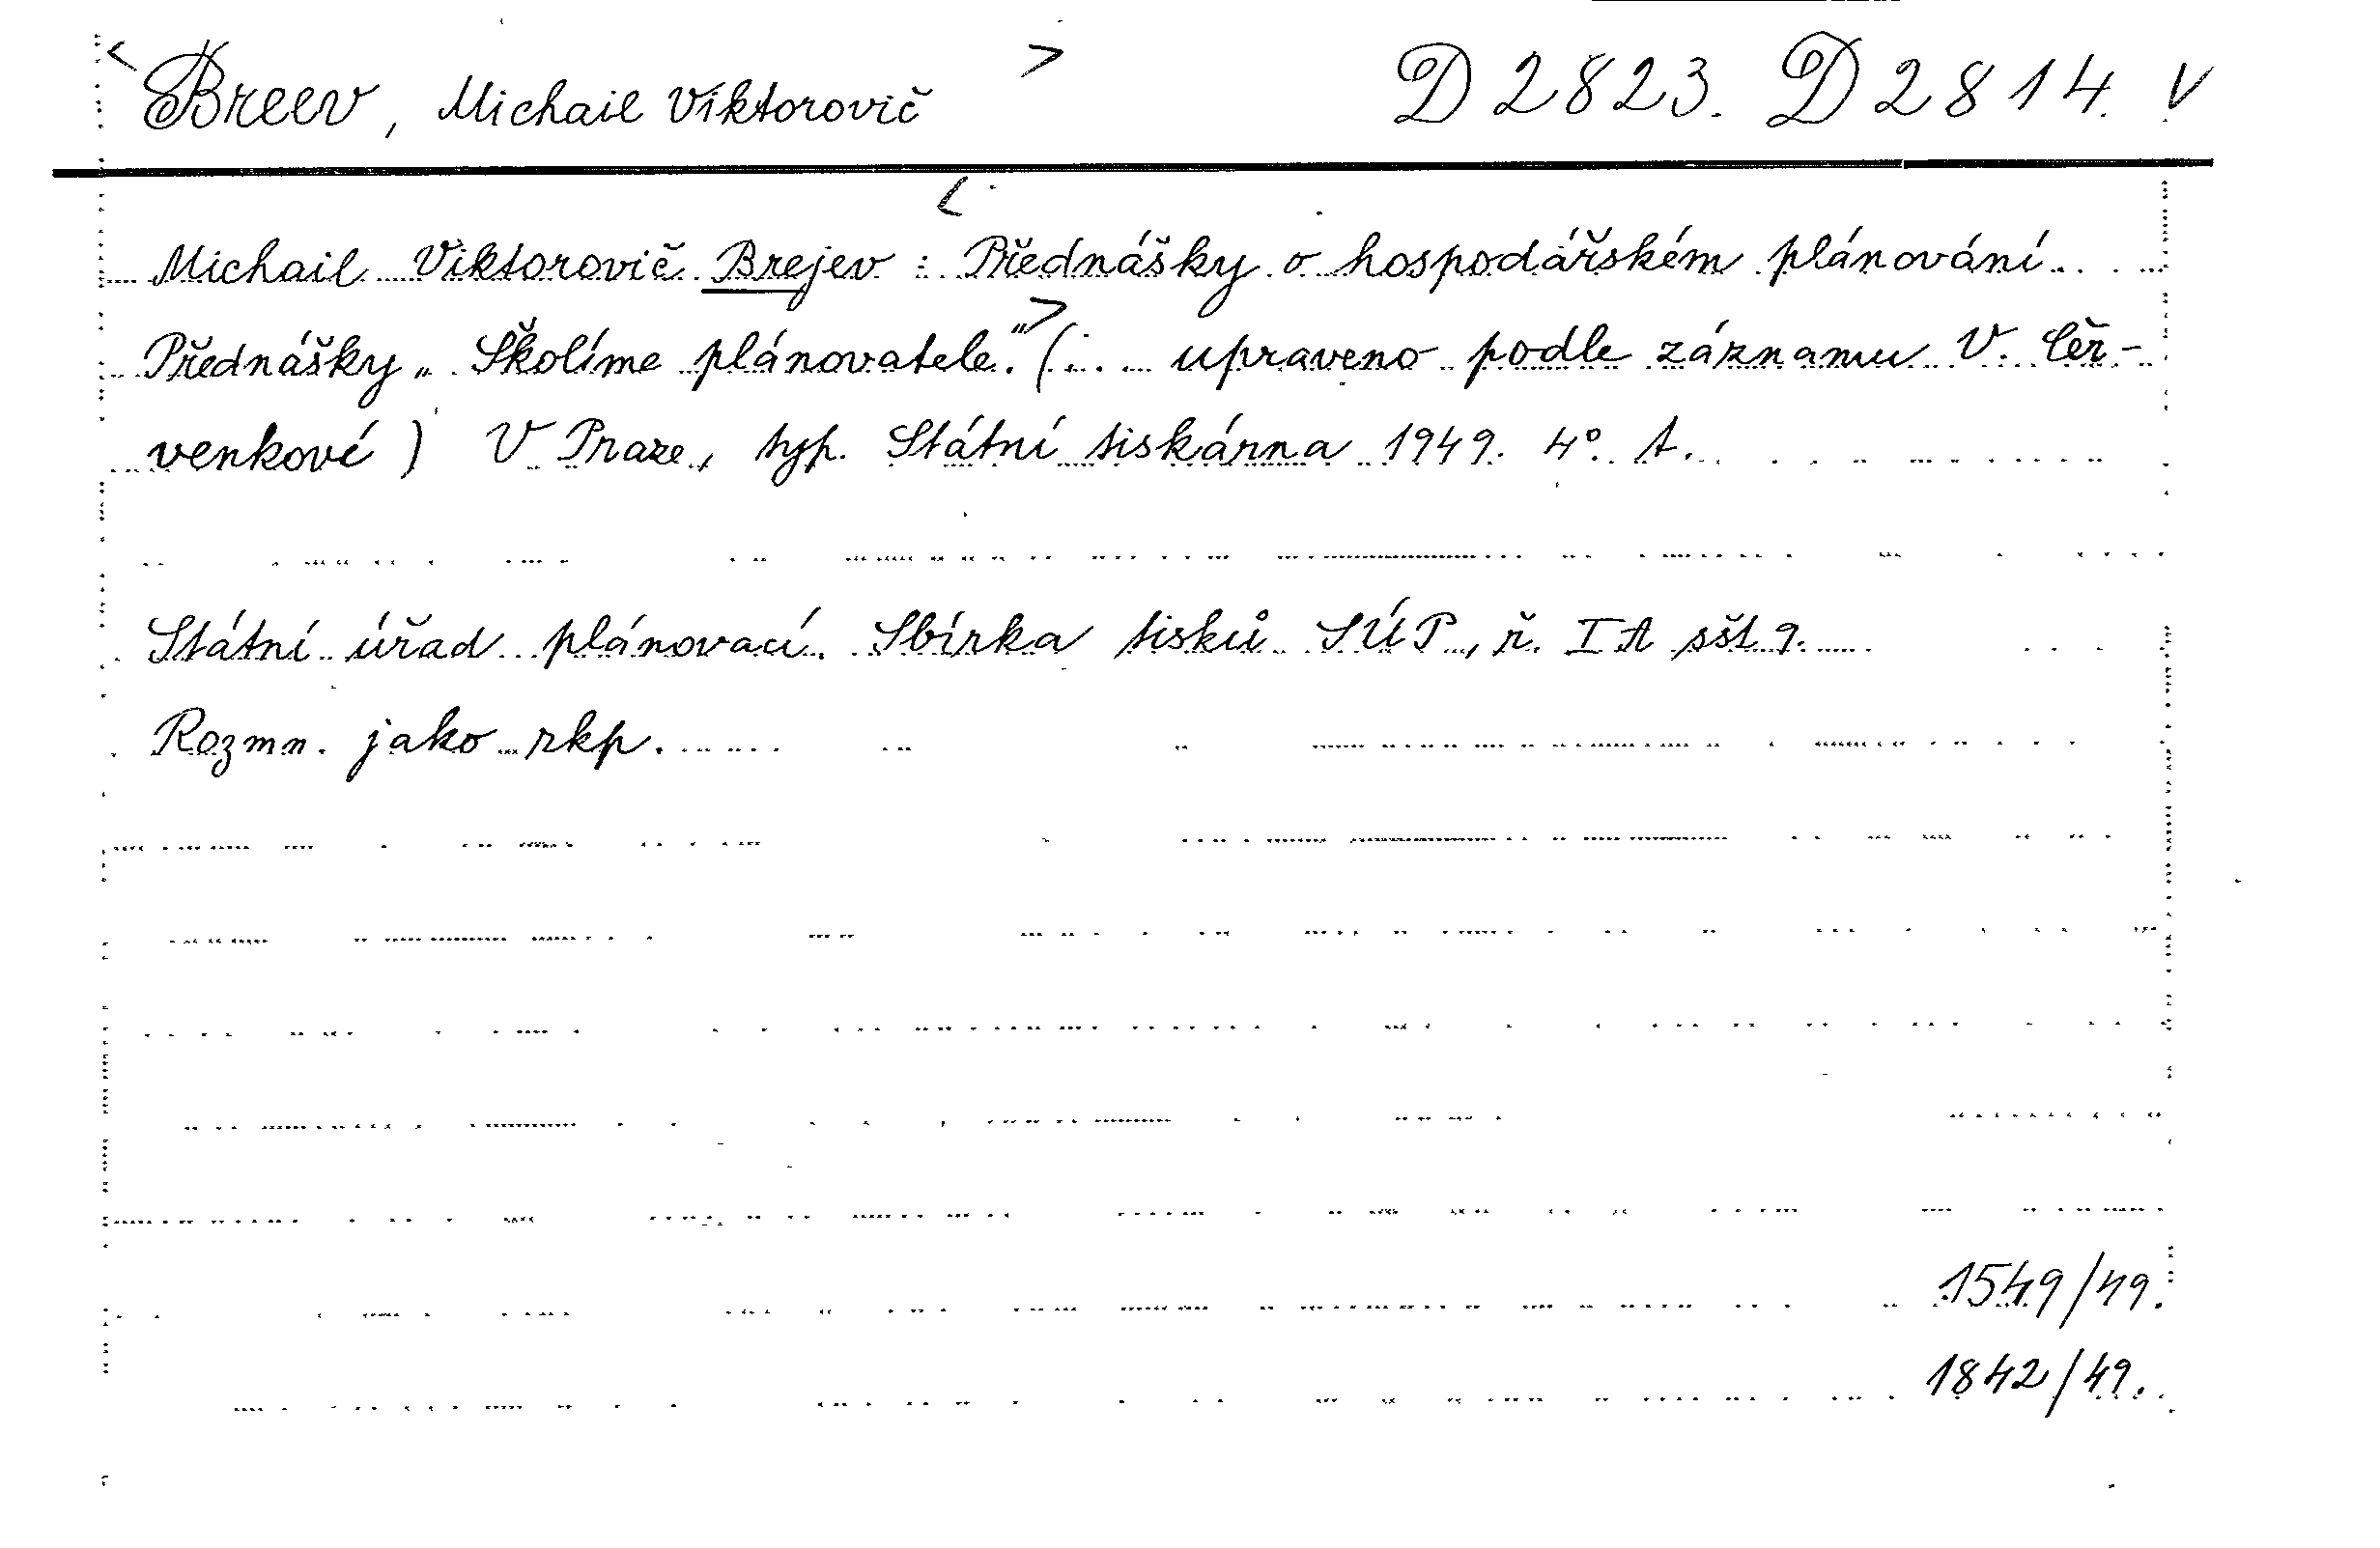 < Breev, Michail Viktorovič > D 2823. D 2814. V
<
Michail Viktorovič Brejev : Přednášky o hospodářském plánování.
Přednášky „Školíme plánovatele."> (... upraveno podle záznamu V. Čer-
venkové) V Praze, typ. Státní tiskárna 1949. 4°. A.
Státní úřad plánovací. Sbírka tisků SÚP, ř. I A sšt 9.
Rozmn. jako rkp.
1549/49.
1842/49.